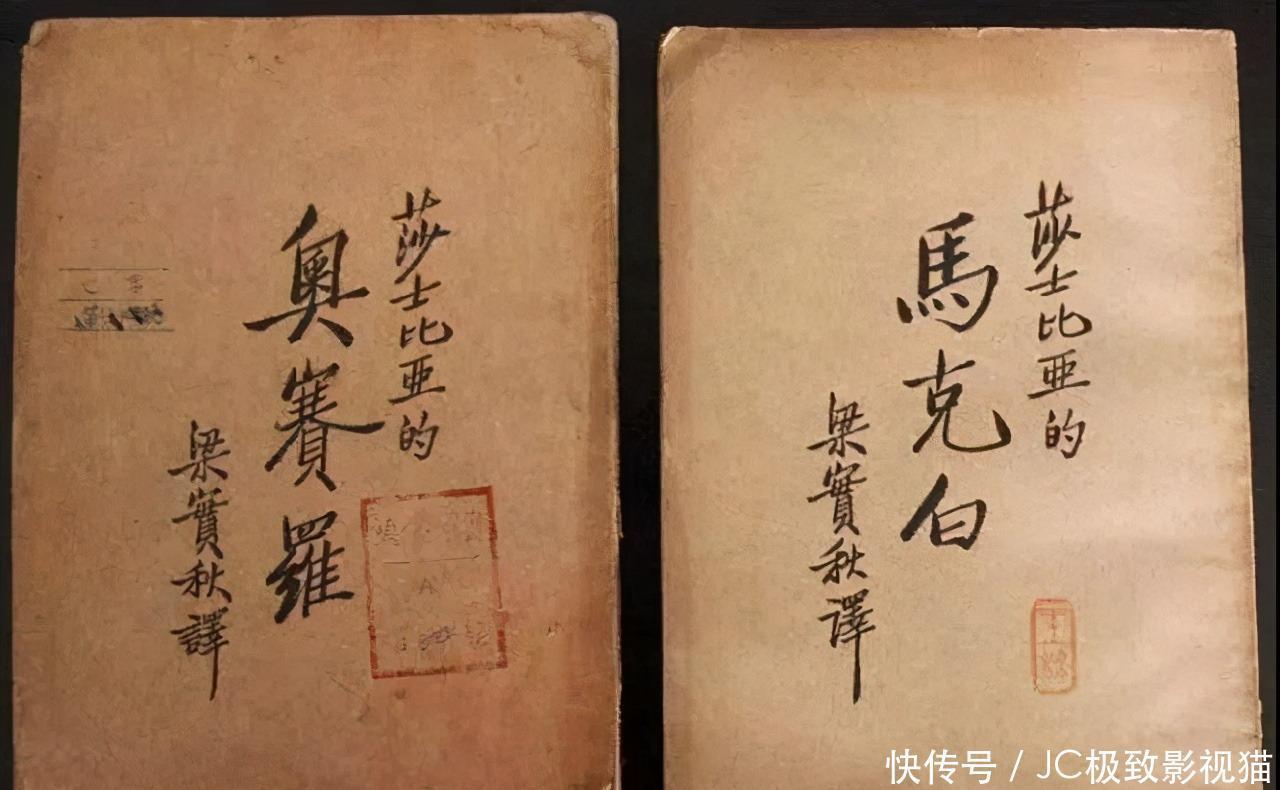 莎士比亚的
奥賽羅
梁實秋譯
莎士比亚的
馬克白
梁實秋譯
快传号 / JC极致影视猫